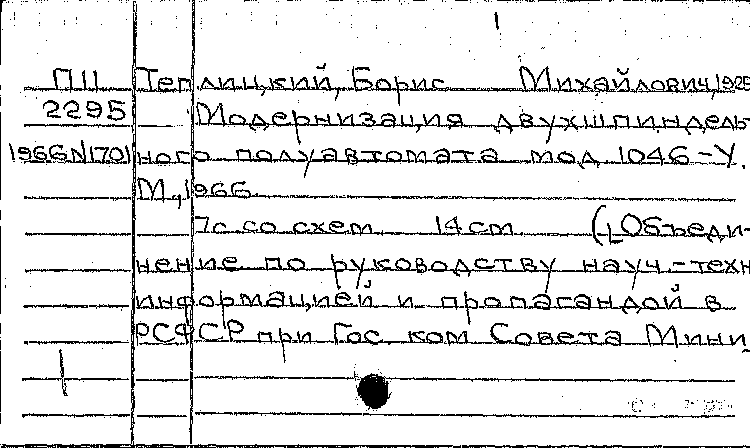 П11 Теплицкий, Борис Михайлович, 1925
2295 Модернизация двухшпиндель-
1966N1701 ного полуавтомата мод. 1046-У.
М., 1966.
7с. со схем. 14 cm. ([Объеди-
нение по руководству науч.-техн
информацией и пропагандой в
РСФСР при Гос. ком. Совета Мини